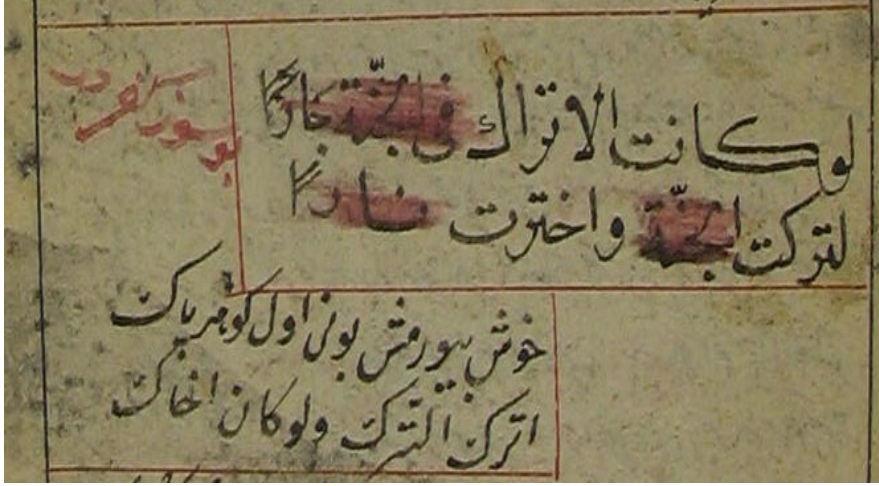 لو كانت الاتراك فى الجنّة جارًا
لتركت الجنّة واخترت نارًا
بو سوز كفردر
خوش بيورمش بونى اول كوهر پاك
اترك الترك ولو كان اخاك